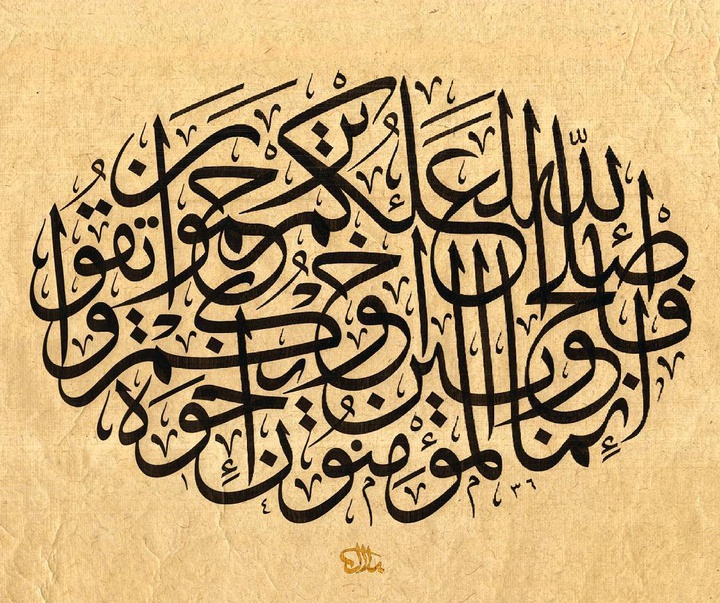 إنما المؤمنون إخوة
فأصلحوا بين أخويكم واتقوا
الله لعلكم ترحمون
١٤٣٦